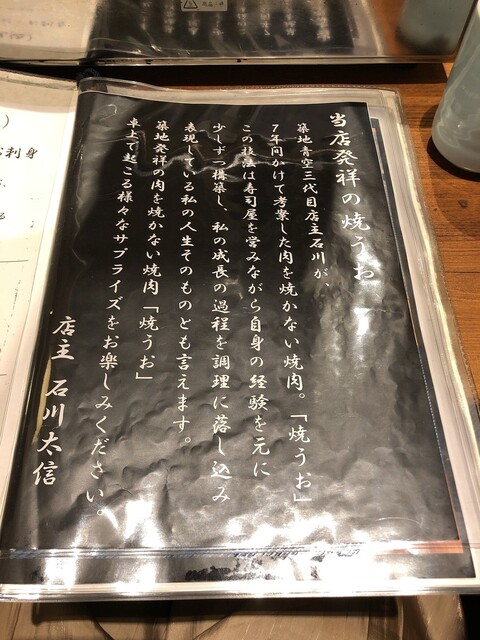 当店発祥の焼うお
築地青空三代目店主石川が、
7年間かけて考案した肉を焼かない焼肉。「焼うお」
この技法は寿司屋を営みながら自身の経験を元に
少しずつ構築し、私の成長の過程を調理に落し込み
表現している私の人生そのものとも言えます。
築地発祥の肉を焼かない焼肉「焼うお」
卓上で起こる様々なサプライズをお楽しみください。
店主 石川太信
刺身